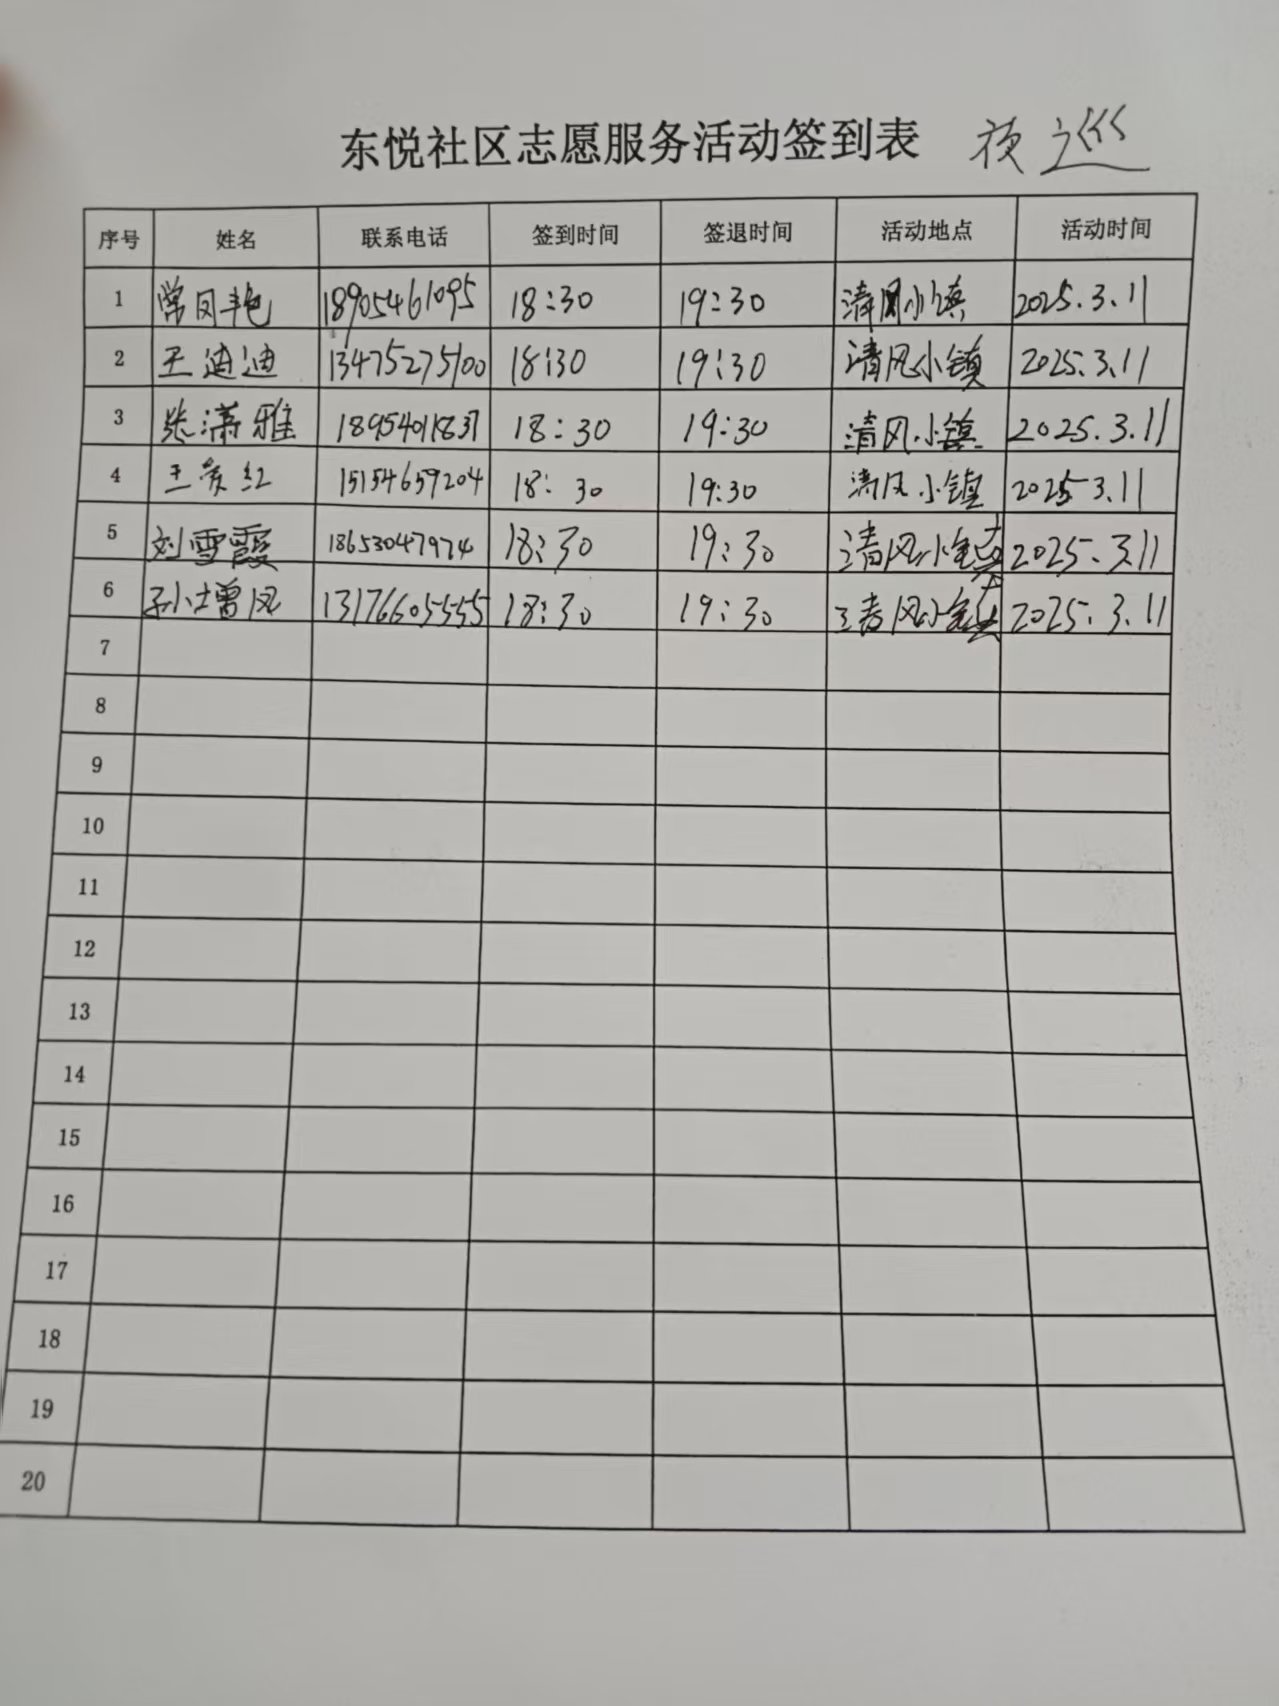 东悦社区志愿服务活动签到表 夜巡
序号 姓名 联系电话 签到时间 签退时间 活动地点 活动时间
1 常凤艳 18905461095 18:30 19:30 清风小镇 2025.3.11
2 王迪迪 13475275100 18:30 19:30 清风小镇 2025.3.11
3 张潇雅 18954011831 18:30 19:30 清风小镇 2025.3.11
4 王爱红 15154659204 18:30 19:30 清风小镇 2025.3.11
5 刘雪霞 18653047974 18:30 19:30 清风小镇 2025.3.11
6 孙增凤 13176605555 18:30 19:30 清风小镇 2025.3.11
7
8
9
10
11
12
13
14
15
16
17
18
19
20